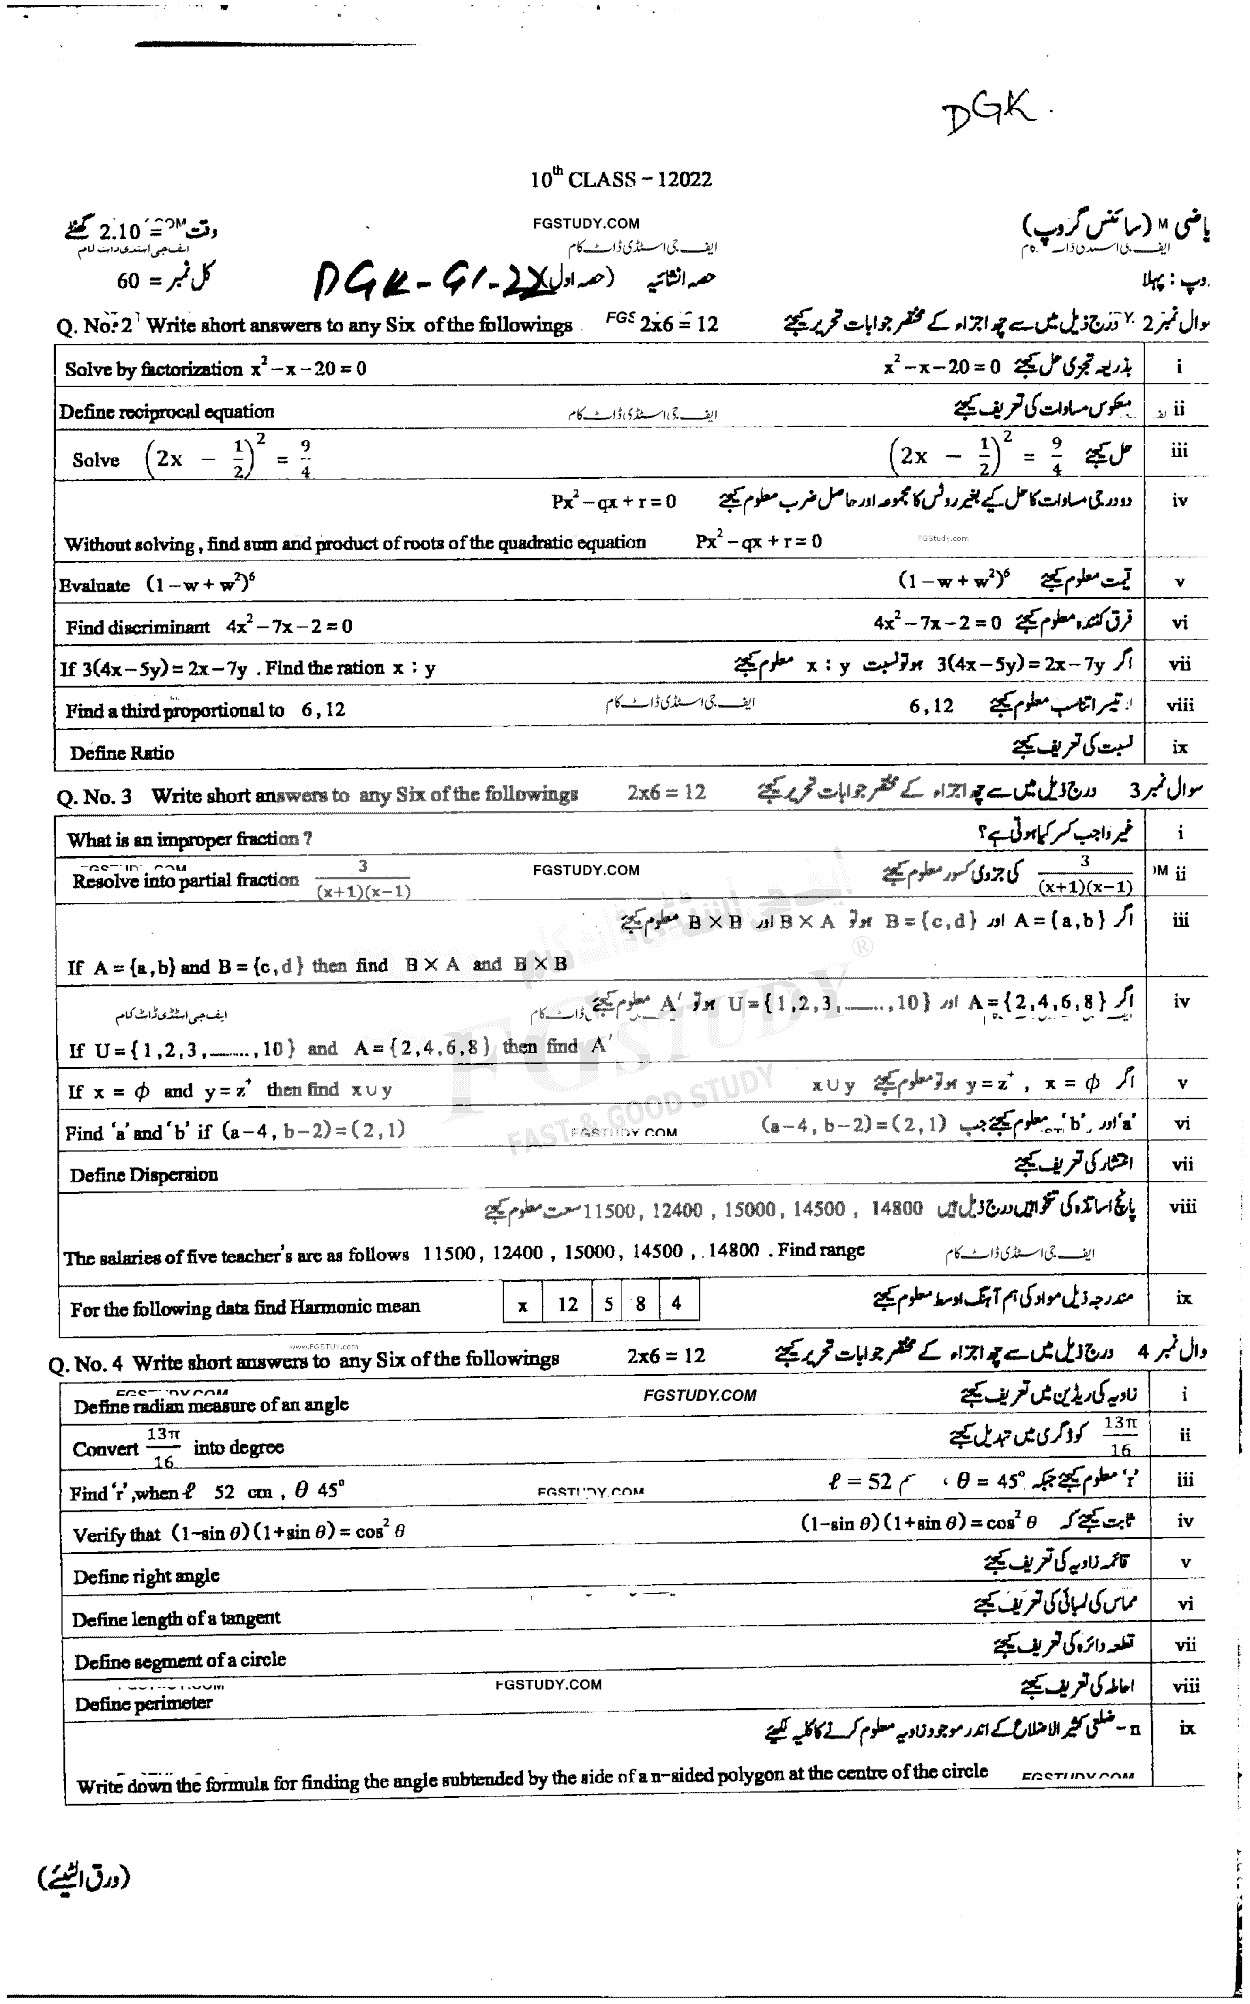 DGK.
10th CLASS – 12022
ریاضی M (سائنس گروپ) FGSTUDY.COM وقت = 2.10 گھنٹے
ایف جی اسٹڈی ڈاٹ کام ایف جی اسٹڈی ڈاٹ کام ایف جی اسٹڈی ڈاٹ کام
گروپ : پہلا حصہ انشائیہ (حصہ اول) DGK-G1-22 کل نمبر = 60
Q. No. 2 Write short answers to any Six of the followings FGS 2x6 = 12 سوال نمبر 2 درج ذیل میں سے چھ اجزاء کے مختصر جوابات تحریر کیجئے
Solve by factorization x²−x−20=0 بذریعہ تجزی حل کیجئے x²−x−20=0 i
Define reciprocal equation ایف جی اسٹڈی ڈاٹ کام معکوس مساوات کی تعریف کیجئے ii
Solve (2x − 1/2)² = 9/4 حل کیجئے (2x − 1/2)² = 9/4 iii
دو درجی مساوات کا حل کیے بغیر روٹس کا مجموعہ اور حاصل ضرب معلوم کیجئے Px²−qx+r=0 iv
Without solving, find sum and product of roots of the quadratic equation Px²−qx+r=0 FGStudy.com
Evaluate (1−w+w²)⁶ قیمت معلوم کیجئے (1−w+w²)⁶ v
Find discriminant 4x²−7x−2=0 فرق کنندہ معلوم کیجئے 4x²−7x−2=0 vi
If 3(4x−5y)=2x−7y . Find the ration x : y اگر 3(4x−5y)=2x−7y ہو تو نسبت x : y معلوم کیجئے vii
Find a third proportional to 6,12 ایف جی اسٹڈی ڈاٹ کام تیسرا تناسب معلوم کیجئے 6,12 viii
Define Ratio نسبت کی تعریف کیجئے ix
Q. No. 3 Write short answers to any Six of the followings 2x6 = 12 سوال نمبر 3 درج ذیل میں سے چھ اجزاء کے مختصر جوابات تحریر کیجئے
What is an improper fraction ? غیر واجب کسر کیا ہوتی ہے؟ i
Resolve into partial fraction 3/((x+1)(x−1)) FGSTUDY.COM 3/((x+1)(x−1)) کی جزوی کسور معلوم کیجئے ii
اگر A={a,b} اور B={c,d} ہو تو B×A اور B×B معلوم کیجئے iii
If A={a,b} and B={c,d} then find B×A and B×B
اگر A={2,4,6,8} اور U={1,2,3,.......,10} ہو تو A′ معلوم کیجئے iv
ایف جی اسٹڈی ڈاٹ کام
If U={1,2,3,.......,10} and A={2,4,6,8} then find A′
FGSTUDY ®
FAST & GOOD STUDY
If x = ϕ and y=z⁺ then find x∪y اگر x = ϕ , y=z⁺ ہو تو معلوم کیجئے x∪y v
Find ‘a’ and ‘b’ if (a−4, b−2)=(2,1) FGSTUDY.COM ‘a’ اور ‘b’ معلوم کیجئے جب (a−4, b−2)=(2,1) vi
Define Dispersion انتشار کی تعریف کیجئے vii
پانچ اساتذہ کی تنخواہیں درج ذیل ہیں 11500, 12400 , 15000, 14500 , 14800 سعت معلوم کیجئے viii
The salaries of five teacher's are as follows 11500, 12400 , 15000, 14500 , 14800 . Find range ایف جی اسٹڈی ڈاٹ کام
For the following data find Harmonic mean x 12 5 8 4 مندرجہ ذیل مواد کی ہم آہنگ اوسط معلوم کیجئے ix
www.FGSTUDY.com
Q. No. 4 Write short answers to any Six of the followings 2x6 = 12 سوال نمبر 4 درج ذیل میں سے چھ اجزاء کے مختصر جوابات تحریر کیجئے
Define radian measure of an angle FGSTUDY.COM زاویہ کی ریڈین میں تعریف کیجئے i
Convert 13π/16 into degree 13π/16 کو ڈگری میں تبدیل کیجئے ii
Find ‘r’, when ℓ 52 cm , θ 45° FGSTUDY.COM ‘r’ معلوم کیجئے جبکہ θ = 45° ، ℓ = 52 سم iii
Verify that (1−sin θ)(1+sin θ)=cos² θ ثابت کیجئے کہ (1−sin θ)(1+sin θ)=cos² θ iv
Define right angle قائمہ زاویہ کی تعریف کیجئے v
Define length of a tangent مماس کی لمبائی کی تعریف کیجئے vi
Define segment of a circle قطعہ دائرہ کی تعریف کیجئے vii
Define perimeter FGSTUDY.COM احاطہ کی تعریف کیجئے viii
n-ضلعی کثیر الاضلاع کے اندر موجود زاویہ معلوم کرنے کا کلیہ لکھیے ix
Write down the formula for finding the angle subtended by the side of a n-sided polygon at the centre of the circle FGSTUDY.COM
(ورق الٹیئے)